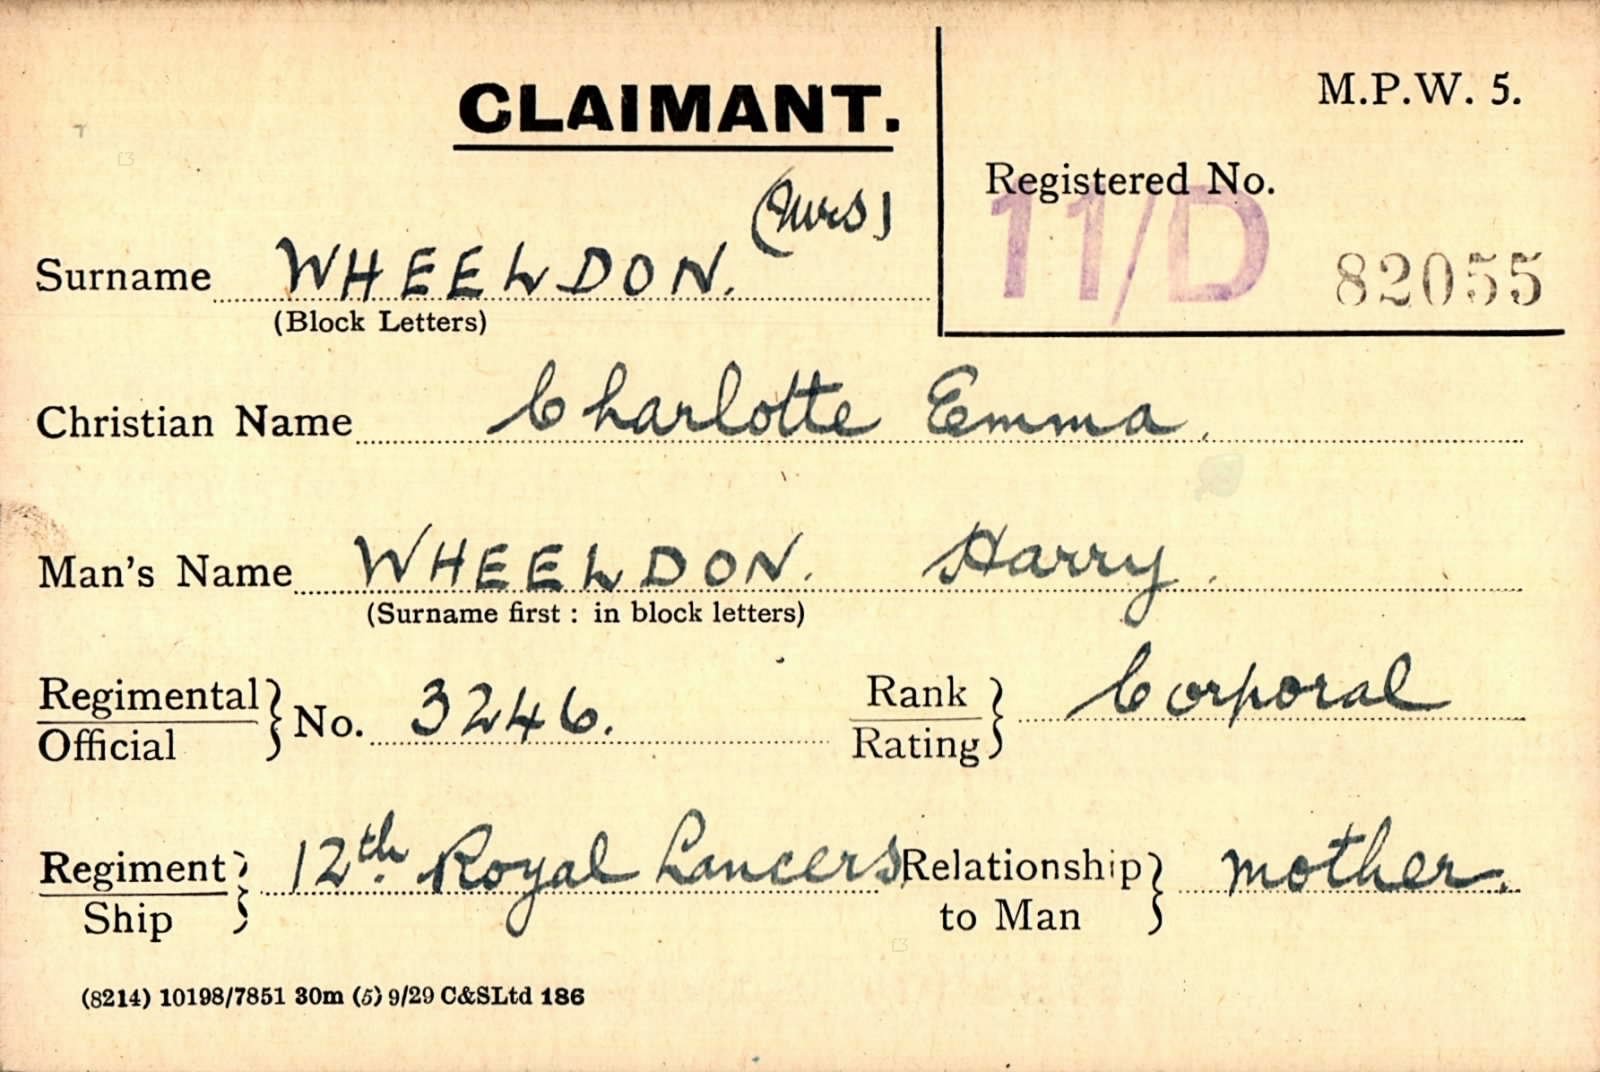 CLAIMANT.
M.P.W. 5.
Registered No.
11/D 82055
(Mrs)
Surname WHEELDON.
(Block Letters)
Christian Name Charlotte Emma.
Man's Name WHEELDON. Harry.
(Surname first : in block letters)
Regimental
Official } No. 3246.
Rank
Rating } Corporal
Regiment
Ship } 12th Royal Lancers
Relationship
to Man } mother.
(8214) 10198/7851 30m (5) 9/29 C&SLtd 186